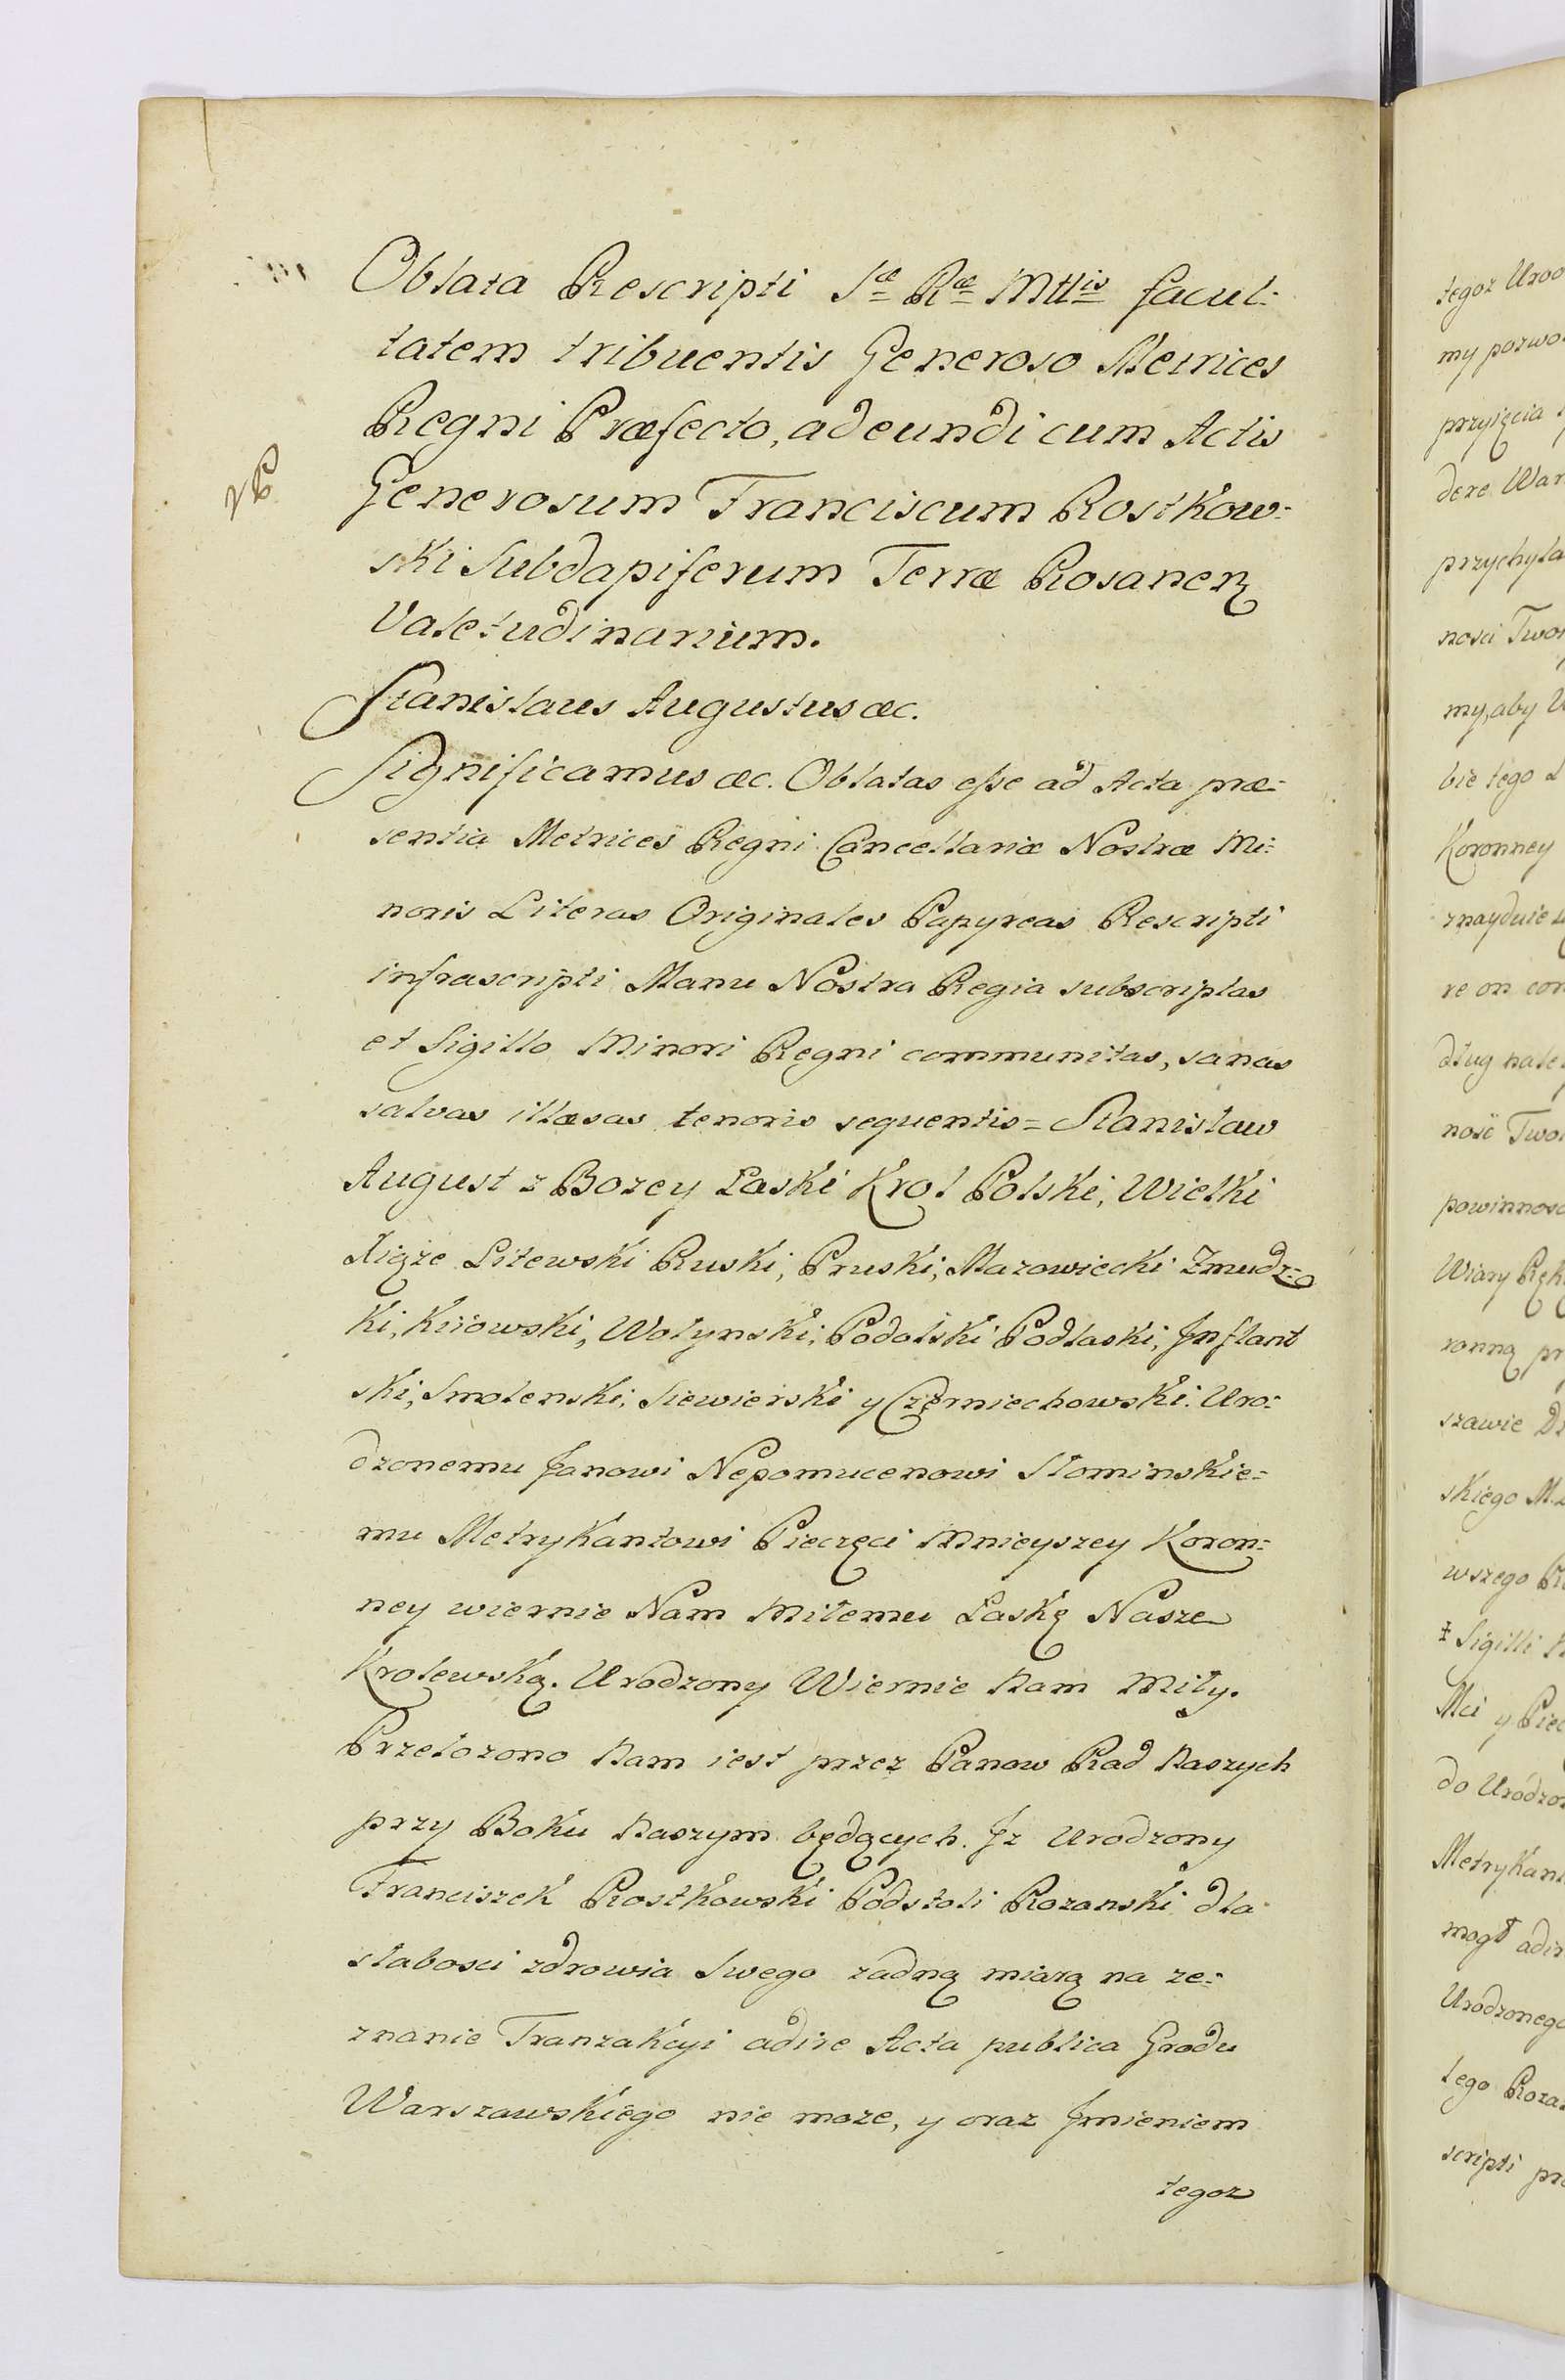 Oblata Rescripti Sæ Ræ Mttis facul:
tatem tribuentis Generoso Metrices
Regni Præfecto, adeundi cum Actis
Generosum Franciscum Rostkow:
ski Subdapiferum Terræ Rosanen
Valetudinarium.
Stanislaus Augustus &c.
Significamus &c. Oblatas esse ad Acta præ:
sentia Metrices Regni Cancellariæ Nostræ Mi:
noris Literas Originales Papyreas Rescripti
infrascripti Manu Nostra Regia subscriptas
et Sigillo Minori Regni communitas, sanas
salvas illæsas tenoris sequentis = Stanisław
August z Bozey Łaski Krol Polski, Wielki
Xiąże Litewski Ruski, Pruski, Mazowiecki Zmudz:
ki, Kiiowski, Wołynski, Podolski Podlaski, Inflant
ski, Smolenski, Siewierski y Czerniechowski. Uro:
dzonemu Janowi Nepomucenowi Słominskie:
mu Metrykantowi Pieczęci Mnieyszey Koron:
ney wiernie Nam Miłemu Łaskę Nasze
Krolewską. Urodzony Wiernie Nam Miły.
Przełozono Nam iest przez Panow Rad Naszych
przy Boku Naszym będących. Iz Urodzony
Franciszek Rostkowski Podstoli Rozanski dla
słabosci zdrowia Swego zadną miarą na ze:
znanie Tranzakcyi adire Acta publica Grodu
Warszawskiego nie moze, y oraz Imieniem
tegoz
tegoz
my
przyięcia
dere
przychyla
nosci
my, aby
bie tego
Koronney
znayduie
re on
dług
nosć
powinnosc
Wiary
ronną
szawie
skiego
wszego
Sigilli
Mci y
do
mogł
Urodzonego
tego
scripti